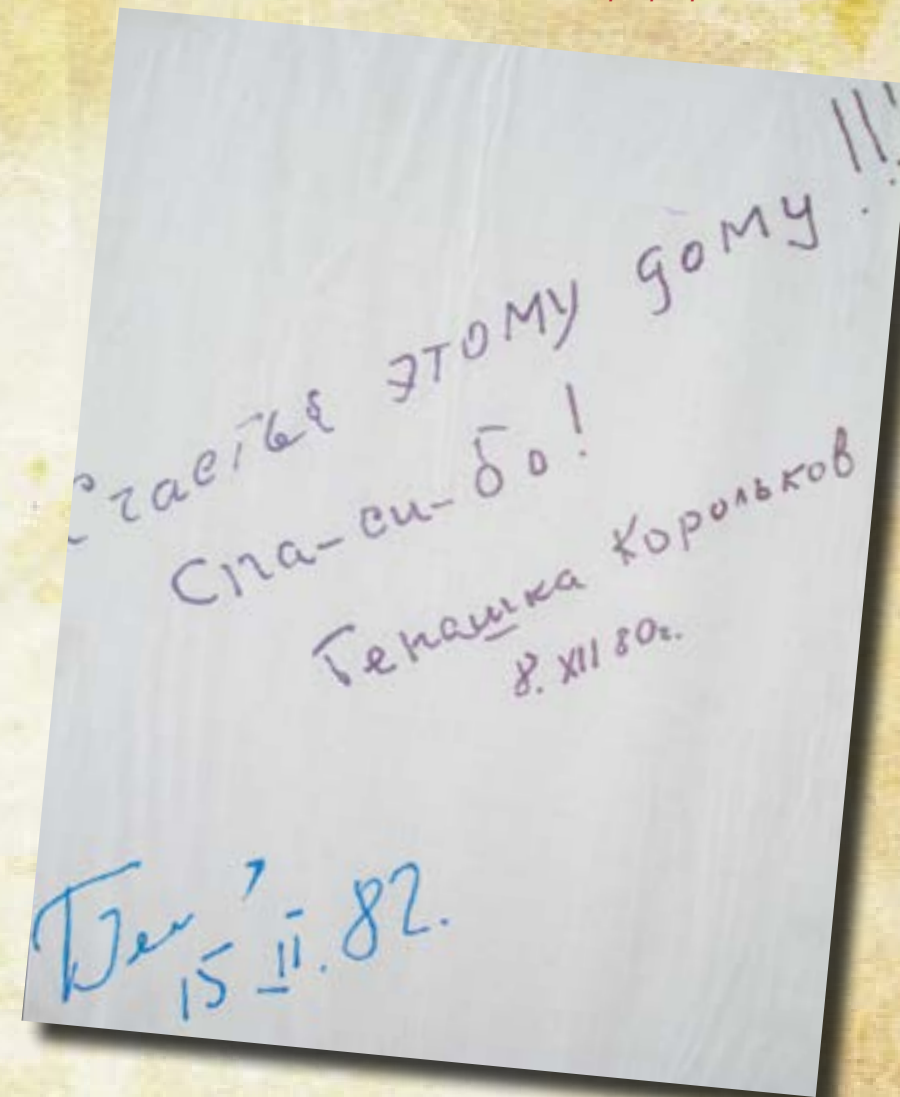 Счастья этому дому!!!
Спа-си-бо!
Генашка Корольков
8. XII 80г.
15 II. 82.